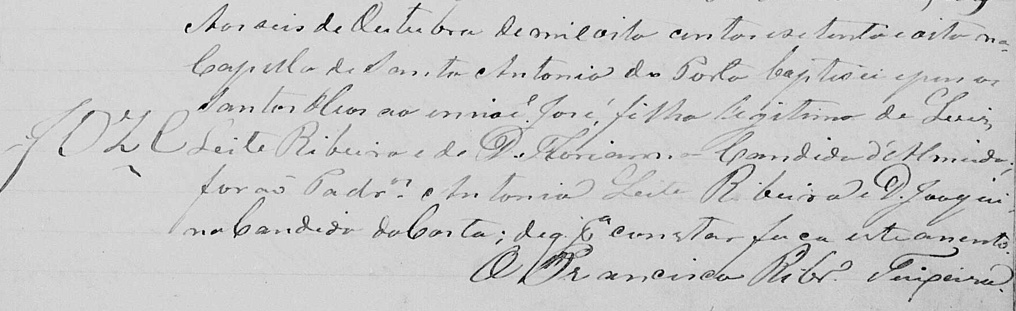 Aos seis de Outubro de mil oito centos e setenta e oito na
Capella de Santo Antonio do Porto baptisei e puz os
Santos Oleos ao innoc.e José, filho legitimo de Luiz
José Leite Ribeiro e de D. Florianna Candida d'Almeida;
forão Padr.os Antonio Leite Ribeiro e D. Joaqui-
na Candida da Costa; de q. p.a constar faço este assento.
O P.e Francisco Ribr.o Teixeira.